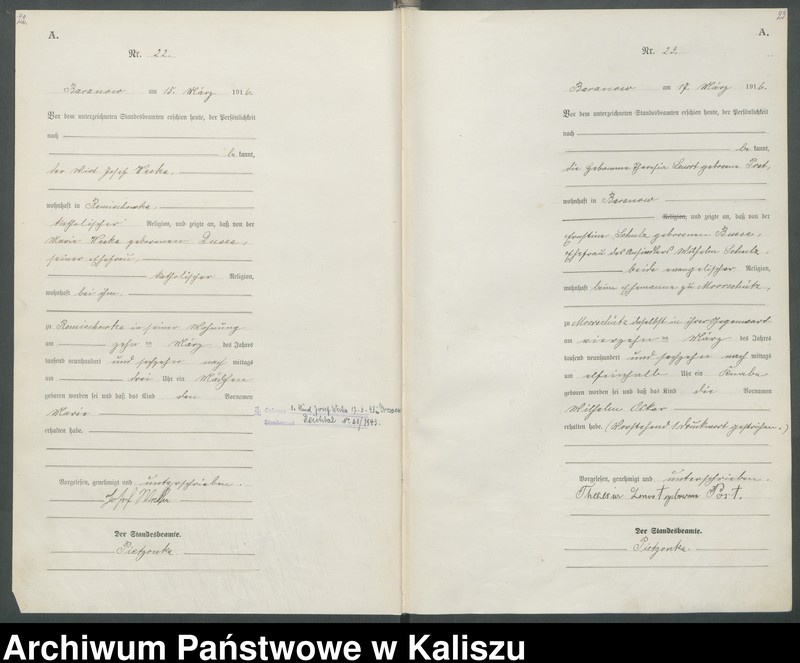 22.
A.
Nr. 22.
Baranow am 15. März 1916.
Vor dem unterzeichneten Standesbeamten erschien heute, der Persönlichkeit
nach
be kannt,
der Wirt Josef
wohnhaft in
katholischer Religion, und zeigte an, daß von der
Marie geborenen
seiner Ehefrau,
katholischer Religion,
wohnhaft bei ihm.
zu in seiner Wohnung
am zehn ten März des Jahres
tausend neunhundert und sechzehn nach mittags
um drei Uhr ein Mädchen
geboren worden sei und daß das Kind den Vornamen
Marie
erhalten habe.
Vorgelesen, genehmigt und unterschrieben.
Josef
Der Standesbeamte.
Pietzonka
Josef
Standesamt Nr. /1943.
23
A.
Nr. 23.
Baranow am 17. März 1916.
Vor dem unterzeichneten Standesbeamten erschien heute, der Persönlichkeit
nach
be kannt,
die Hebamme geborene Post,
wohnhaft in Baranow
Religion, und zeigte an, daß von der
Ernstine Schulz geborenen Busse,
Ehefrau des Ansiedlers Wilhelm Schulz,
beide evangelischer Religion,
wohnhaft beim Ehemanne zu Mooreschütz,
zu Mooreschütz daselbst in ihrer Gegenwart
am vierzehn ten März des Jahres
tausend neunhundert und sechzehn nach mittags
um elfeinhalb Uhr ein Knabe
geboren worden sei und daß das Kind die Vornamen
Wilhelm Oskar
erhalten habe. (Vorstehend 1 Druckwort gestrichen.)
Vorgelesen, genehmigt und unterschrieben.
geborene Post.
Der Standesbeamte.
Pietzonka
Archiwum Państwowe w Kaliszu